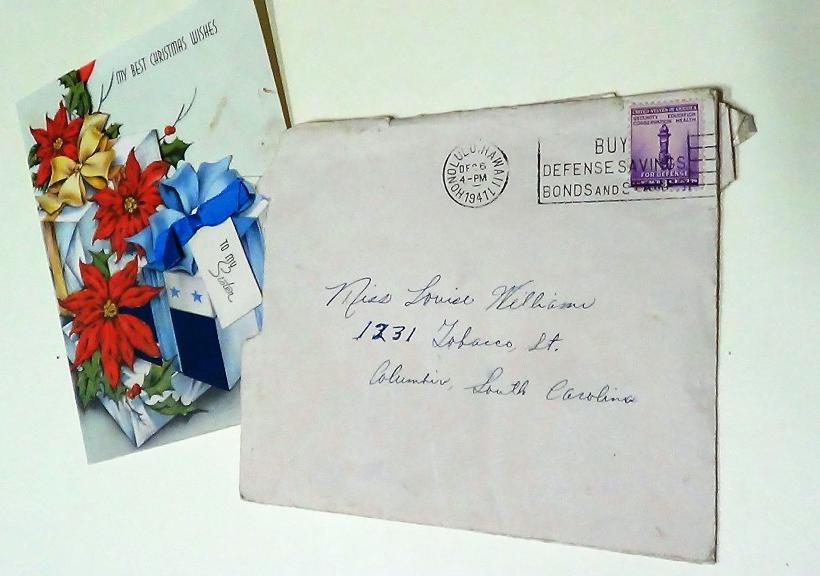 MY BEST CHRISTMAS WISHES
TO MY
Sister
HONOLULU, HAWAII
DEC 6
4-PM
1941
BUY
DEFENSE SAVINGS
BONDS AND
UNITED STATES OF AMERICA
SECURITY EDUCATION
CONSERVATION HEALTH
FOR DEFENSE
Miss Louise Williams
1231 Tobacco, St.
Columbia, South Carolina